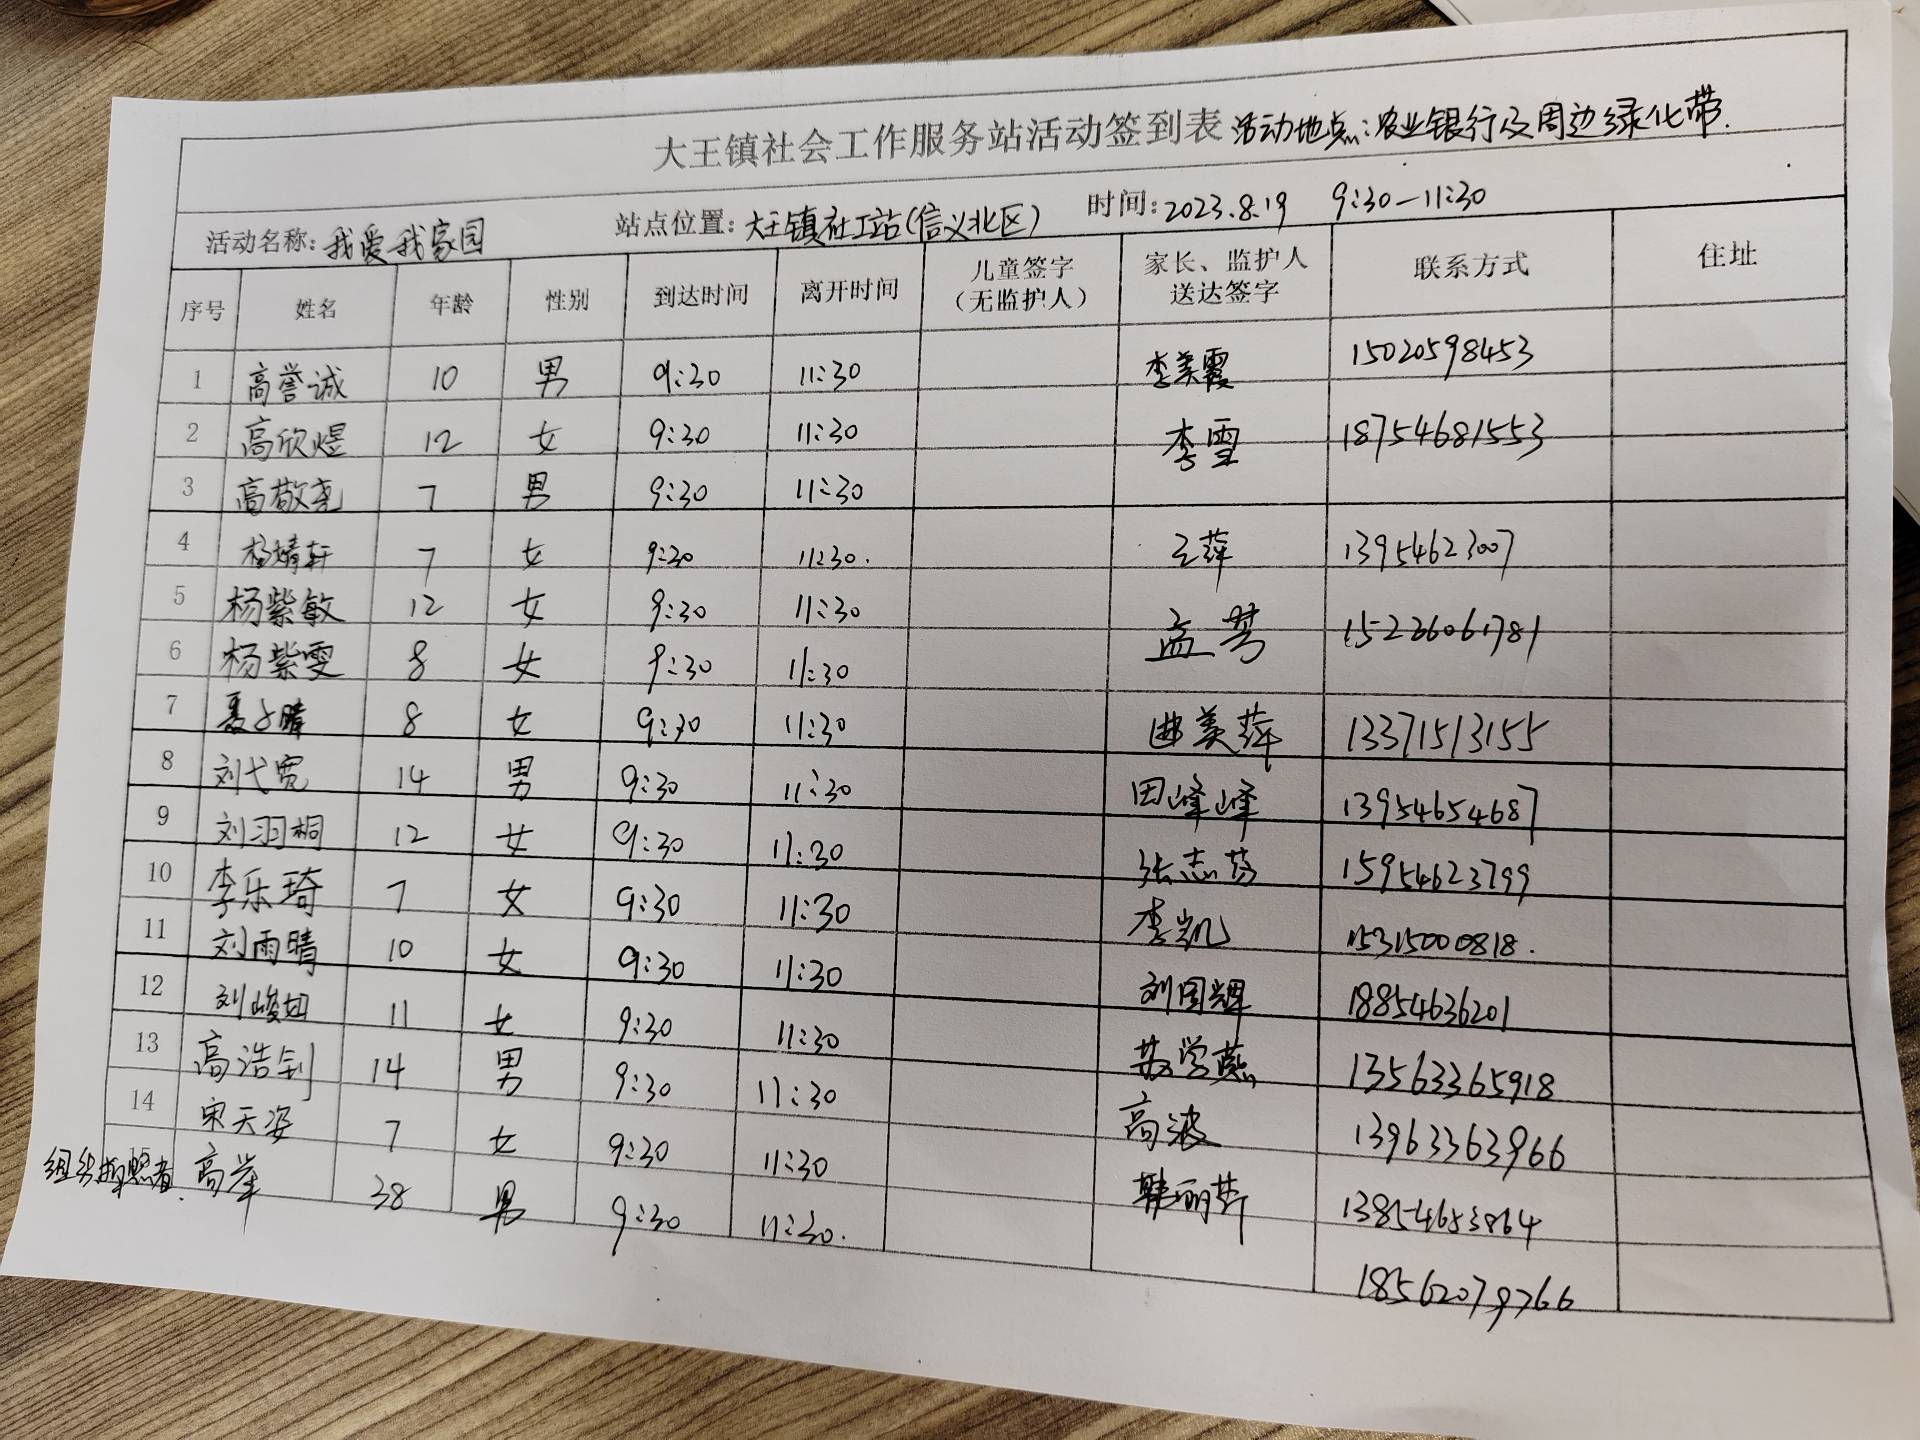 大王镇社会工作服务站活动签到表 活动地点:农业银行及周边绿化带.
活动名称:我爱我家园 站点位置:大王镇社工站(信义北区) 时间:2023.8.19 9:30—11:30
序号 姓名 年龄 性别 到达时间 离开时间 儿童签字(无监护人) 家长、监护人送达签字 联系方式 住址
1 高誉诚 10 男 9:30 11:30 李美霞 15020598453
2 高欣煜 12 女 9:30 11:30 李雪 18754681553
3 高敬尧 7 男 9:30 11:30
4 杨婧轩 7 女 9:30 11:30. 王萍 13954623007
5 杨紫敏 12 女 9:30 11:30 孟芎 152236061781
6 杨紫雯 8 女 9:30 11:30
7 聂子晴 8 女 9:30 11:30 曲美萍 13371513155
8 刘弋宽 14 男 9:30 11:30 田峰峰 13954654687
9 刘羽桐 12 女 9:30 11:30 张志芬 15954623799
10 李乐琦 7 女 9:30 11:30 李凯 15315000818.
11 刘雨晴 10 女 9:30 11:30 刘国辉 18854636201
12 刘峻如 11 女 9:30 11:30 苏学燕 13563365918
13 高浩钊 14 男 9:30 11:30 高波 13963363966
14 宋天姿 7 女 9:30 11:30 韩丽萍 13854653864
15 高举 38 男 9:30 11:30. 18562079766